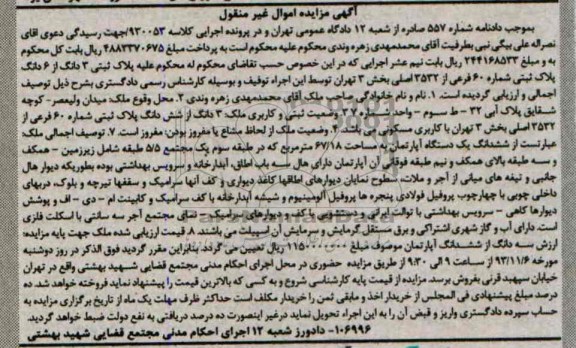 آگهی مزایده اموال غیر منقول
بموجب دادنامه شماره ۵۵۷ صادره از شعبه ۱۲ دادگاه عمومی تهران و در پرونده اجرایی کلاسه ۹۳۰۰۵۳/جهت رسیدگی دعوی آقای
نصراله علی بیگی نبی بطرفیت آقای محمدمهدی زهره وندی محکوم علیه محکوم است به پرداخت مبلغ ۴۸۸۳۳۷۰۶۷۵ ریال بابت کل محکوم
به و مبلغ ۲۴۴۱۶۸۵۳۳ ریال بابت نیم عشر اجرایی که در این خصوص حسب تقاضای محکوم له محکوم علیه پلاک ثبتی ۳ دانگ از ۶ دانگ
پلاک ثبتی شماره ۶۰ فرعی از ۳۵۳۲ اصلی بخش ۳ تهران توسط این اجراء توقیف و بوسیله کارشناس رسمی دادگستری بشرح ذیل توصیف
اجمالی و ارزیابی گردیده است. ۱. نام و نام خانوادگی صاحب ملک: آقای محمدمهدی زهره وندی ۲. محل وقوع ملک: میدان ولیعصر- کوچه
شقایق پلاک آبی ۳۲ - ط سوم - واحد ۲. وضعیت ثبتی و کاربری ملک: ۳ دانگ از شش دانگ پلاک ثبتی شماره ۶۰ فرعی از
۳۵۳۲ اصلی بخش ۳ تهران با کاربری مسکونی می باشد. ۴. وضعیت ملک از لحاظ مشاع یا مفروز بودن: مفروز است. ۷. توصیف اجمالی ملک:
عبارتست از ششدانگ یک دستگاه آپارتمان به مساحت ۶۷/۱۸ مترمربع که در طبقه سوم یک مجتمع ۵/۵ طبقه شامل زیرزمین - همکف
و سه طبقه بالای همکف و نیم طبقه فوقانی آن آپارتمان دارای هال سه باب اطاق، آبدارخانه و سرویس بهداشتی بوده بطوریکه دیوار هال
جانبی و تیغه های میانی از آجر و ملات، سطوح نمایان دیوارهای اطاقها کاغذ دیواری و کف آنها سرامیک و سقفها تیرچه و بلوک، دربهای
داخلی چوبی با چهارچوب پروفیل فولادی پنجره ها پروفیل آلومینیوم و شیشه آبدارخانه با کف سرامیک و کابینت ام - دی - اف و پوشش
دیوارها کاهی - سرویس بهداشتی با توالت ایرانی و دستشویی با کف و دیوارهای سرامیک - نمای مجتمع آجر سه سانتی با اسکلت فلزی
است. دارای آب و گاز شهری اشتراکی و برق مستقل گرمایش و سرمایش آن اسپیلت می باشند. ۸. قیمت ارزیابی شده ملک جهت پایه مزایده:
ارزش سه دانگ از ششدانگ آپارتمان موصوف مبلغ ریال تعیین می گردد. بنابراین مقرر گردید فوق الذکر در روز دوشنبه
مورخه ۹۳/۱۱/۶ از ساعت ۹ الی ۹.۳۰ از طریق مزایده حضوری در محل اجرای احکام مدنی مجتمع قضایی شهید بهشتی واقع در تهران
خیابان سپهبد قرنی بفروش برسد. مزایده از قیمت پایه کارشناسی شروع و به کسی که بالاترین قیمت را پیشنهاد نماید فروخته خواهد شد. ده
درصد مبلغ پیشنهادی فی المجلس از خریدار اخذ و مابقی ثمن را خریدار مکلف است حداکثر ظرف مهلت یک ماه از تاریخ برگزاری مزایده به
حساب سپرده دادگستری واریز و قبض آن را به این اجراء تحویل نماید درغیر اینصورت ده درصد دریافتی به نفع دولت ضبط خواهد گردید.
۱۰۶۹۹۶- دادورز شعبه ۱۲ اجرای احکام مدنی مجتمع قضایی شهید بهشتی